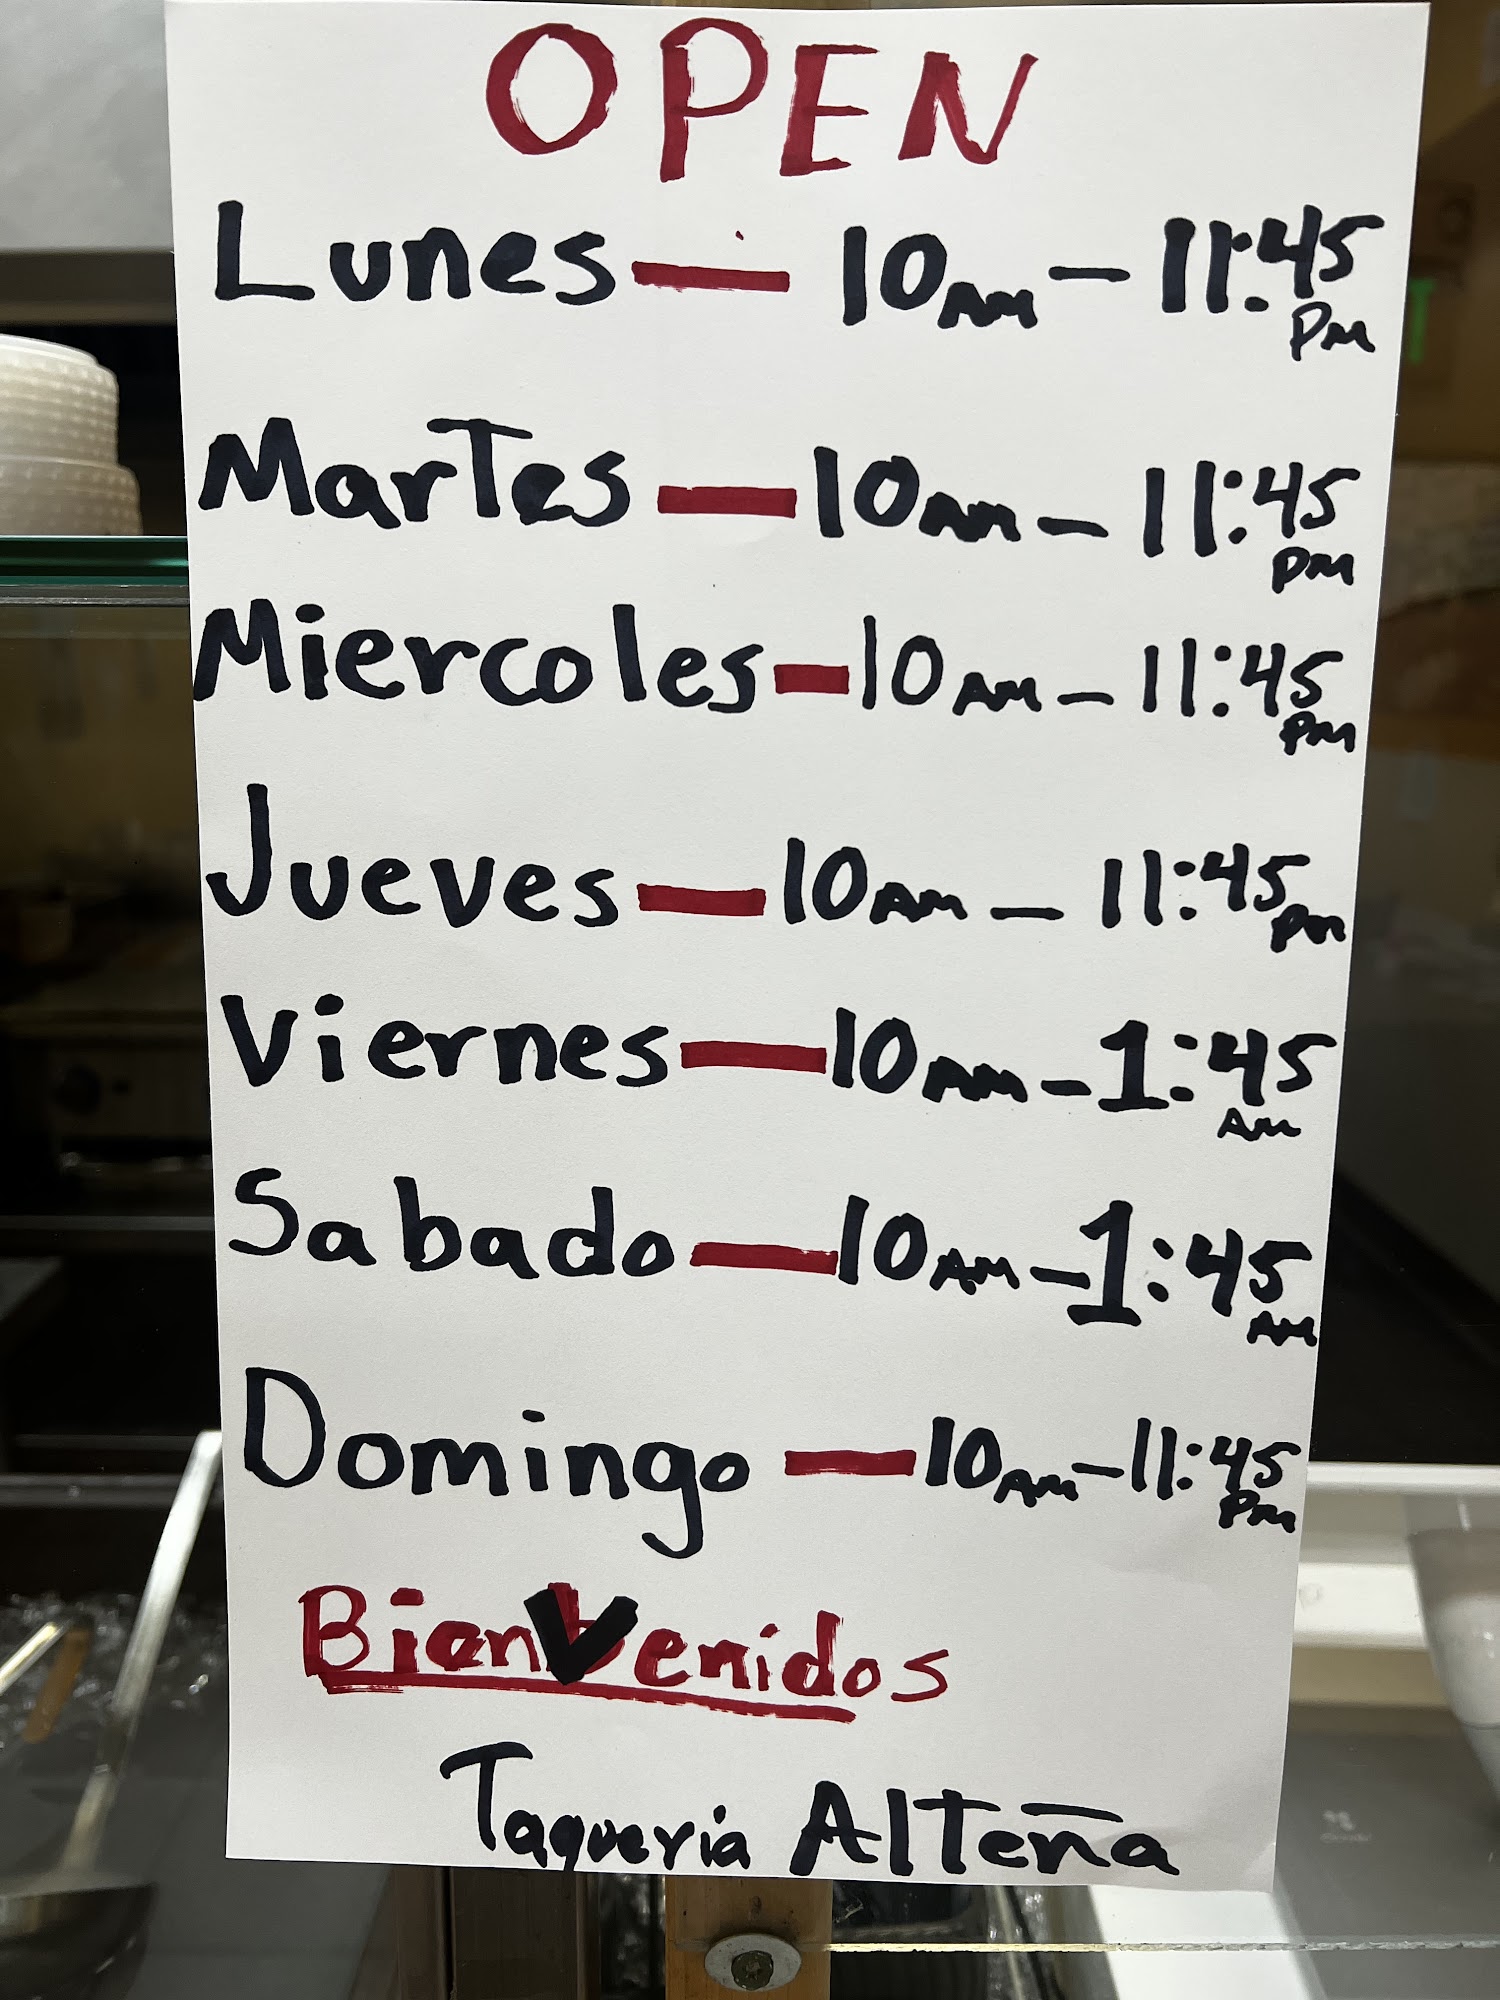 OPEN
Lunes — 10AM — 11:45 PM
Martes — 10AM — 11:45 PM
Miercoles — 10AM — 11:45 PM
Jueves — 10AM — 11:45 PM
Viernes — 10AM — 1:45 AM
Sabado — 10AM — 1:45 AM
Domingo — 10AM — 11:45 PM
BienVenidos
Taqueria Alteña